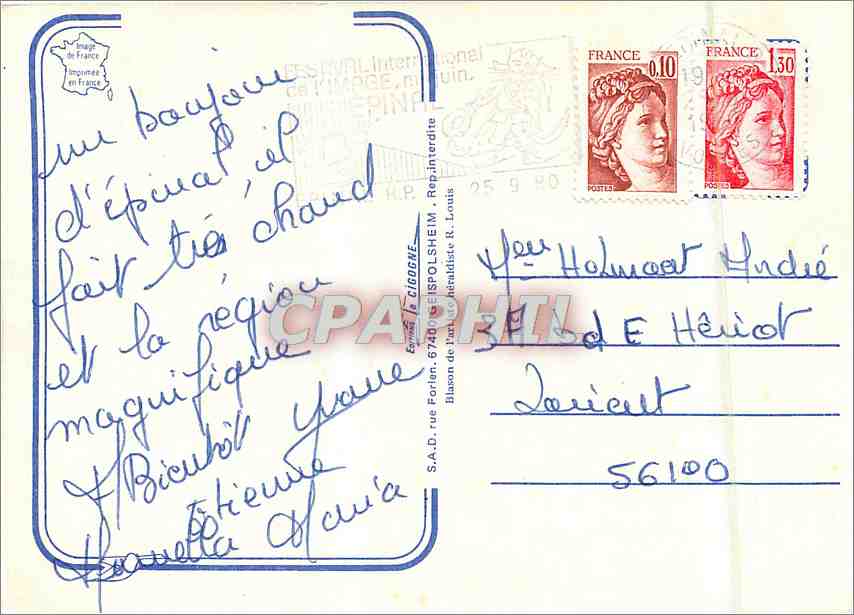 Image
de France
Imprimée
en France
un bonjour
d'épinal, il
fait très chaud
et la région
magnifique
A Bientôt Yvane
Etienne
Maria
FESTIVAL International
de l'IMAGE, mi-juin.
EPINAL
R.P. 25 9 80
FRANCE 0,10
POSTES
FRANCE 1,30
POSTES
Editions la CIGOGNE
S.A.D. rue Forlen. 67400 GEISPOLSHEIM . Rep. interdite
Blason de l'artiste héraldiste R. Louis
CPAPHIL
André
37 bd E Hériot
Lorient
56100